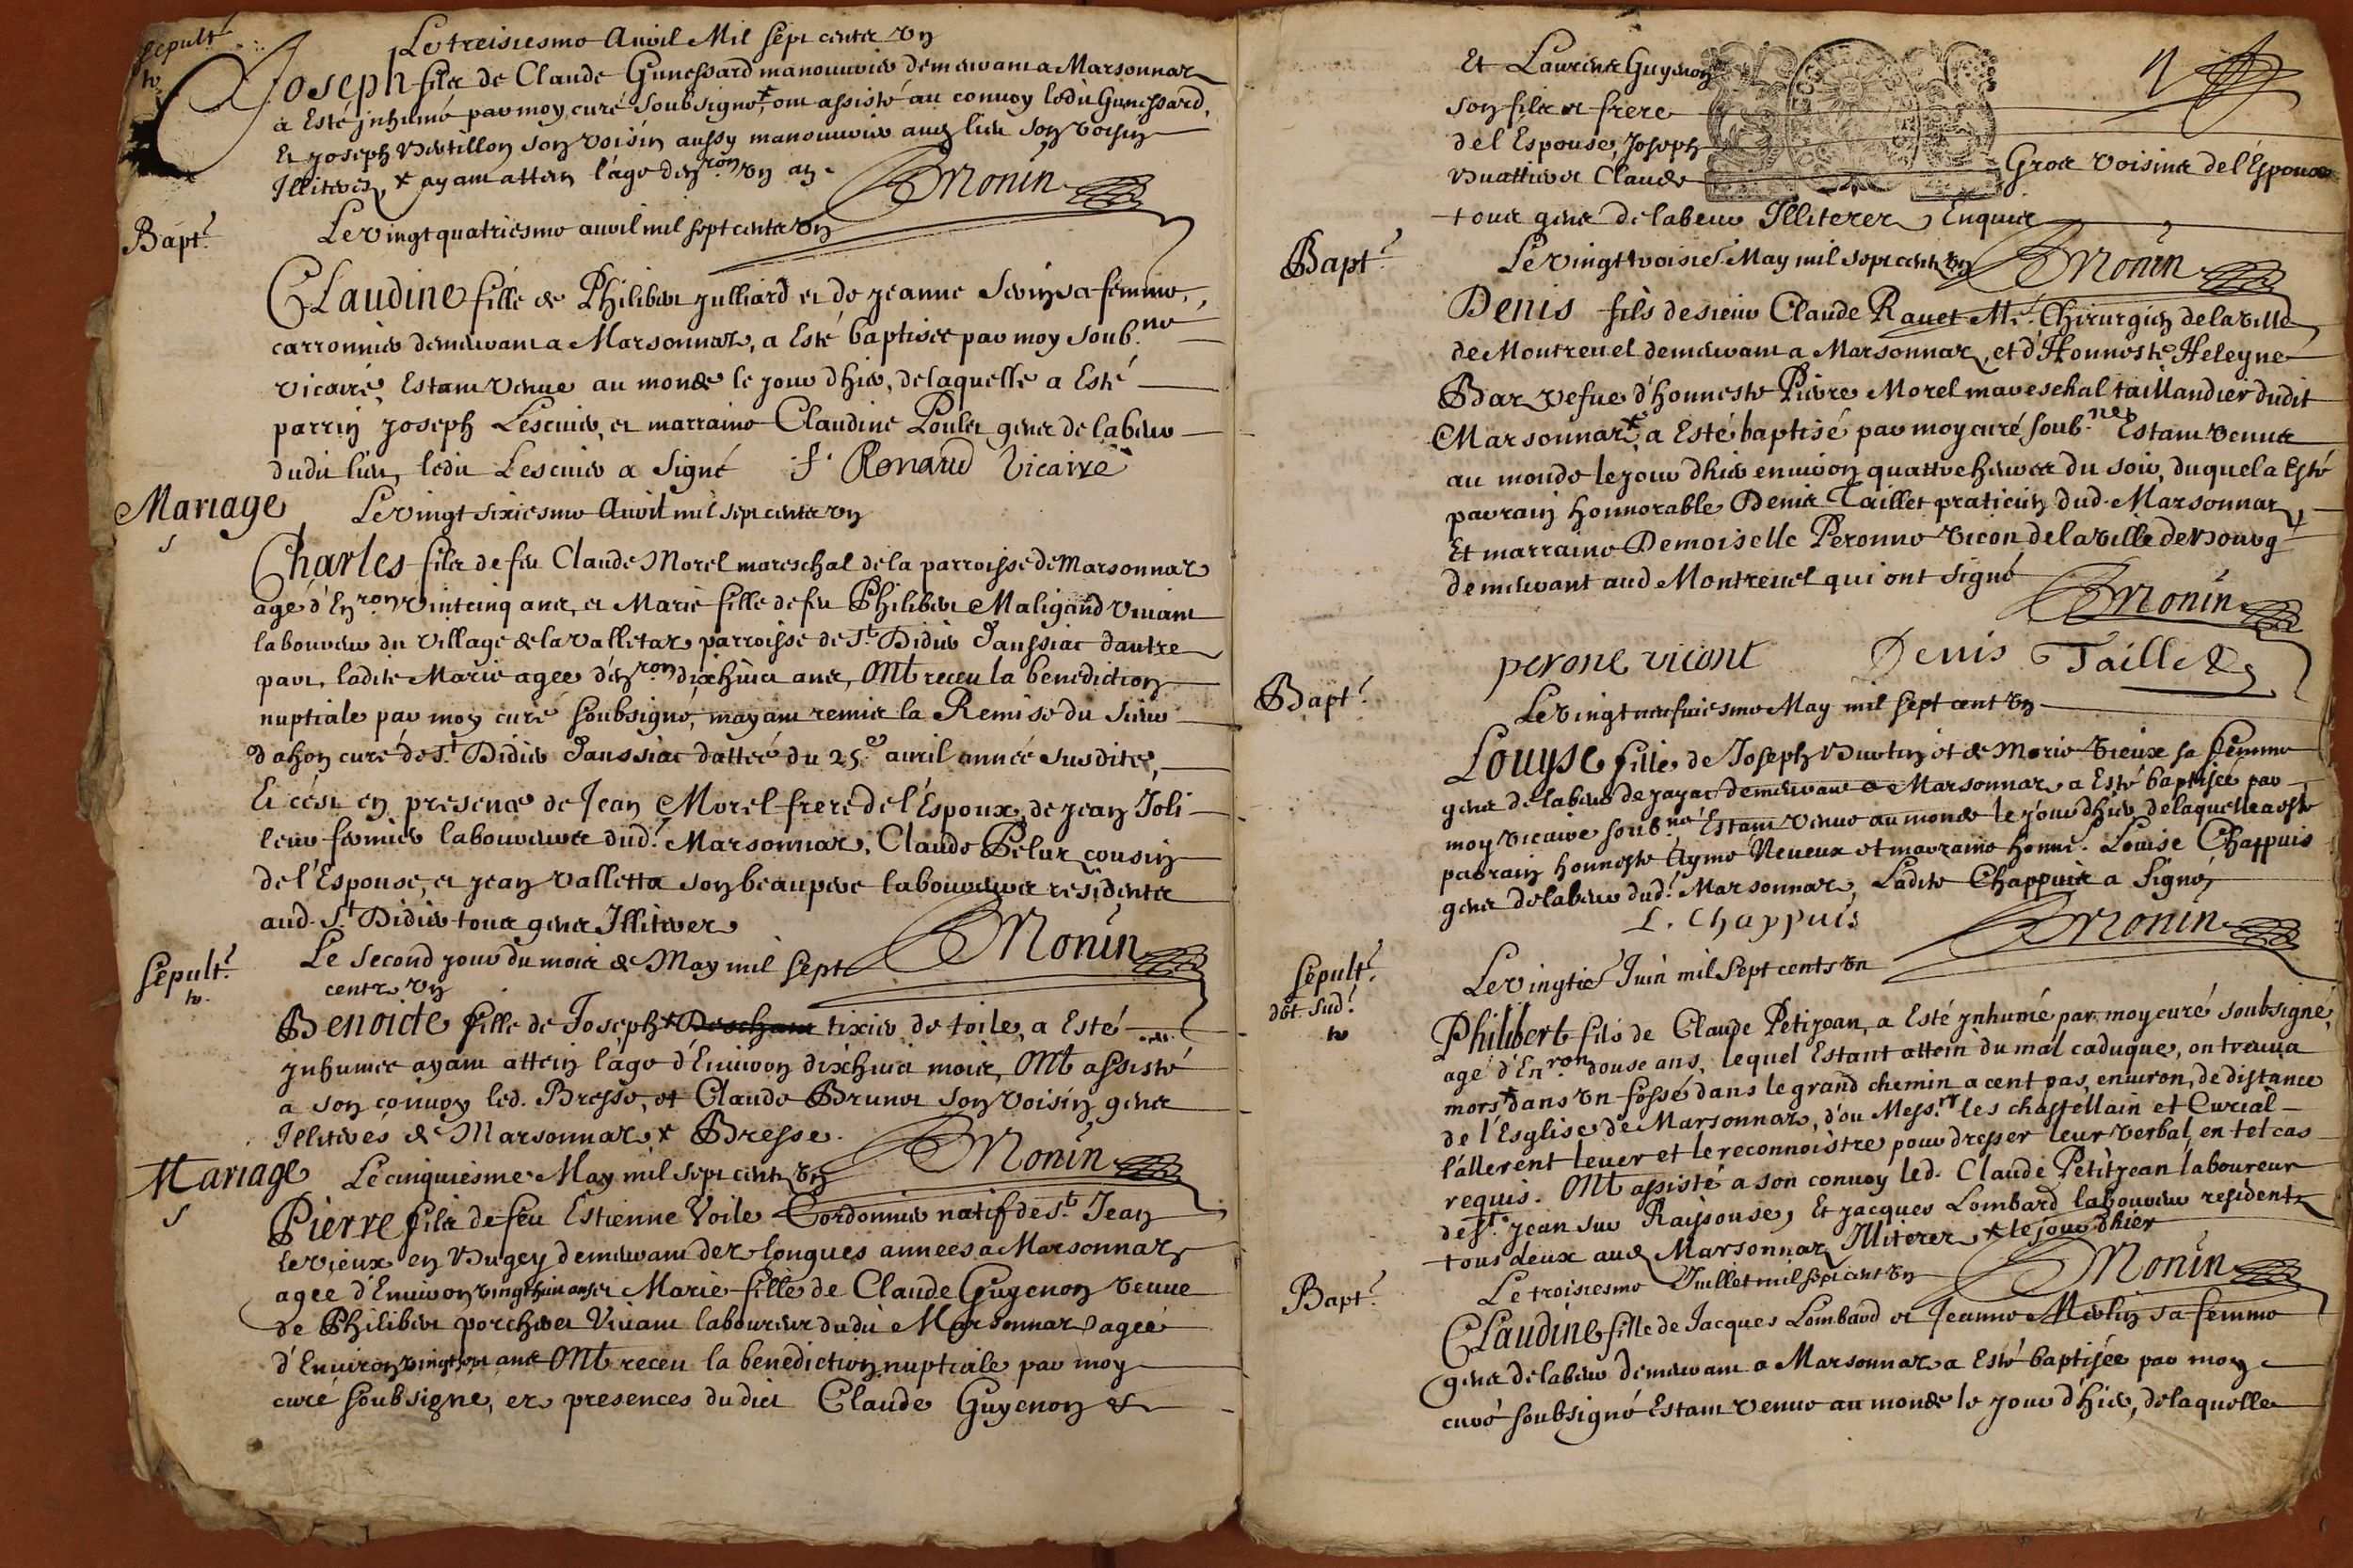 Sepult.
Le treisiesme Auril Mil sept cents vn
Joseph fils de Claude Gunessard manouurier demeurant a Marsonnas
a Esté jnhumé par moy curé soubsigné, * ont assisté au conuoy ledit Gunessard,
Et joseph son voisin aussy manouurier aud lieu son voisin
Illiteres * ayant attein l'age d'enron vn an.
Monin
Bapt.
Le vingt quatriesme auril mil sept cents vn
Claudine fille de Philibert julliard et de jeanne sa femme,
carronnier demeurant a Marsonnas, a Esté baptisée par moy soub.né
vicaire, Estant venue au monde le jour d'hier, de laquelle a Esté
parrin joseph Lescuier, et marraine Claudine Poulet gens de labeur
dudit lieu, ledit Lescuier a signé f. Renaud vicaire
Mariage
Le vingt sixiesme Auril mil sept cents vn
Charles fils de feu Claude Morel mareschal de la parroisse de Marsonnas
agé d'Enron vintcinq ans, et Marie fille de feu Philibert Maligand viuant
laboureur du village de la Valletaz parroisse de St. Didier d'aussiat d'autre
part, ladite Marie agée d'enron dixhuict ans, Ont receu la benediction
nuptiale par moy curé soubsigné, mayant remis la Remise du sieur
dahon curé de St. Didier d'aussiat dattée du 25e auril année susdite,
Et c'est en presence de Jean Morel frere de l'Espoux, de jean Joli
leur fermier laboureurs dud. Marsonnas, Claude Pelux cousin
de l'Espouse, et jean valletta son beaupere laboureurs residents
aud. St Didier tous gens Illiteres
Monin
Sepult.
Le second jour du mois de May mil sept
cents vn
Benoicte fille de Joseph * tixier de toile, a Esté
jnhumée ayant attein l'age d'Enuiron dixhuict mois, Ont assisté
a son conuoy led. Bresse, et Claude Brunet son voisin gens
Illiteres de Marsonnas * Bresse.
Monin
Mariage
Le cinquiesme May mil sept cents vn
Pierre fils de feu Estienne Voile Cordonnier natif de St. Jean
le vieux en Bugey demeurant des longues années a Marsonnas
agé d'Enuiron vingthuit ans et Marie fille de Claude Guyenon veuue
de Philibert porcheret viuant laboureur dudit Marsonnas agée
d'Enuiron vingtsept ans Ont receu la benediction nuptiale par moy
curé soubsigné, es presences dudict Claude Guyenon &
Et Laurent Guyenon
son fils et frere
de l'Espouse, Joseph
Buattier et Claude Gros voisins de l'Espouse
tous gens de labeur Illiteres Enquis
Monin
Bapt.
Le vingt troisie. May mil sept cents vn
Denis fils de sieur Claude Rauet Mr. Chirurgien de la ville
de Montreuel demeurant a Marsonnas, et d'Honneste Heleyne
Bar vefue d'honneste Pierre Morel mareschal taillandier dudit
Marsonnas * a Esté baptisé par moy curé soub.né, Estant venu
au monde le jour d'hier enuiron quattre heures du soir, duquel a Esté
parrain honnorable Denis Taillet praticien dud. Marsonnas
Et marraine Demoiselle Peronne vicon de la ville de Bourg
demeurant aud Montreuel qui ont signé
Monin
perone vicont Denis Taillet
Bapt.
Le vingt neufuiesme May mil sept cent vn
Louyse fille de Joseph Burtin et de Marie vieux sa femme
gens de labeur de jayat demeurant a Marsonnas a Esté baptisée par
moy vicaire soub.né Estant venue au monde le jour d'hier de laquelle a esté
parrain honneste Aymé Neueux et marraine honne. Louise Chappuis
gens de labeur dud. Marsonnas, Ladite Chappuis a signé
L. Chappuis
Monin
Sepult.
dôt sud.
Le vingtie. Juin mil sept cents vn
Philibert fils de Claude Petijean, a Esté jnhumé par moy curé soubsigné,
agé d'Enron douse ans, lequel Estant attein du mal caduque, on treuua
mors * dans vn fossé dans le grand chemin a cent pas, enuiron, de distance
de l'Esglise de Marsonnas, d'ou Mess.rs les chastellain et Curial
l'allerent leuer et le reconnoistre pour dresser leur verbal, en tel cas
requis. Ont assisté a son conuoy led. Claude Petitjean laboureur
de St. jean sur Raissouse, Et jacques Lombard laboureur residents
tous deux aud Marsonnas Illiteres * le jour d'hier
Monin
Bapt.
Le troisiesme Juillet mil sept cent vn
Claudine fille de Jacques Lombard et Jeanne Merlin sa femme
gens de labeur demeurant a Marsonnas a Esté baptisée par moy
curé soubsigné Estant venue au monde le jour d'hier, de laquelle